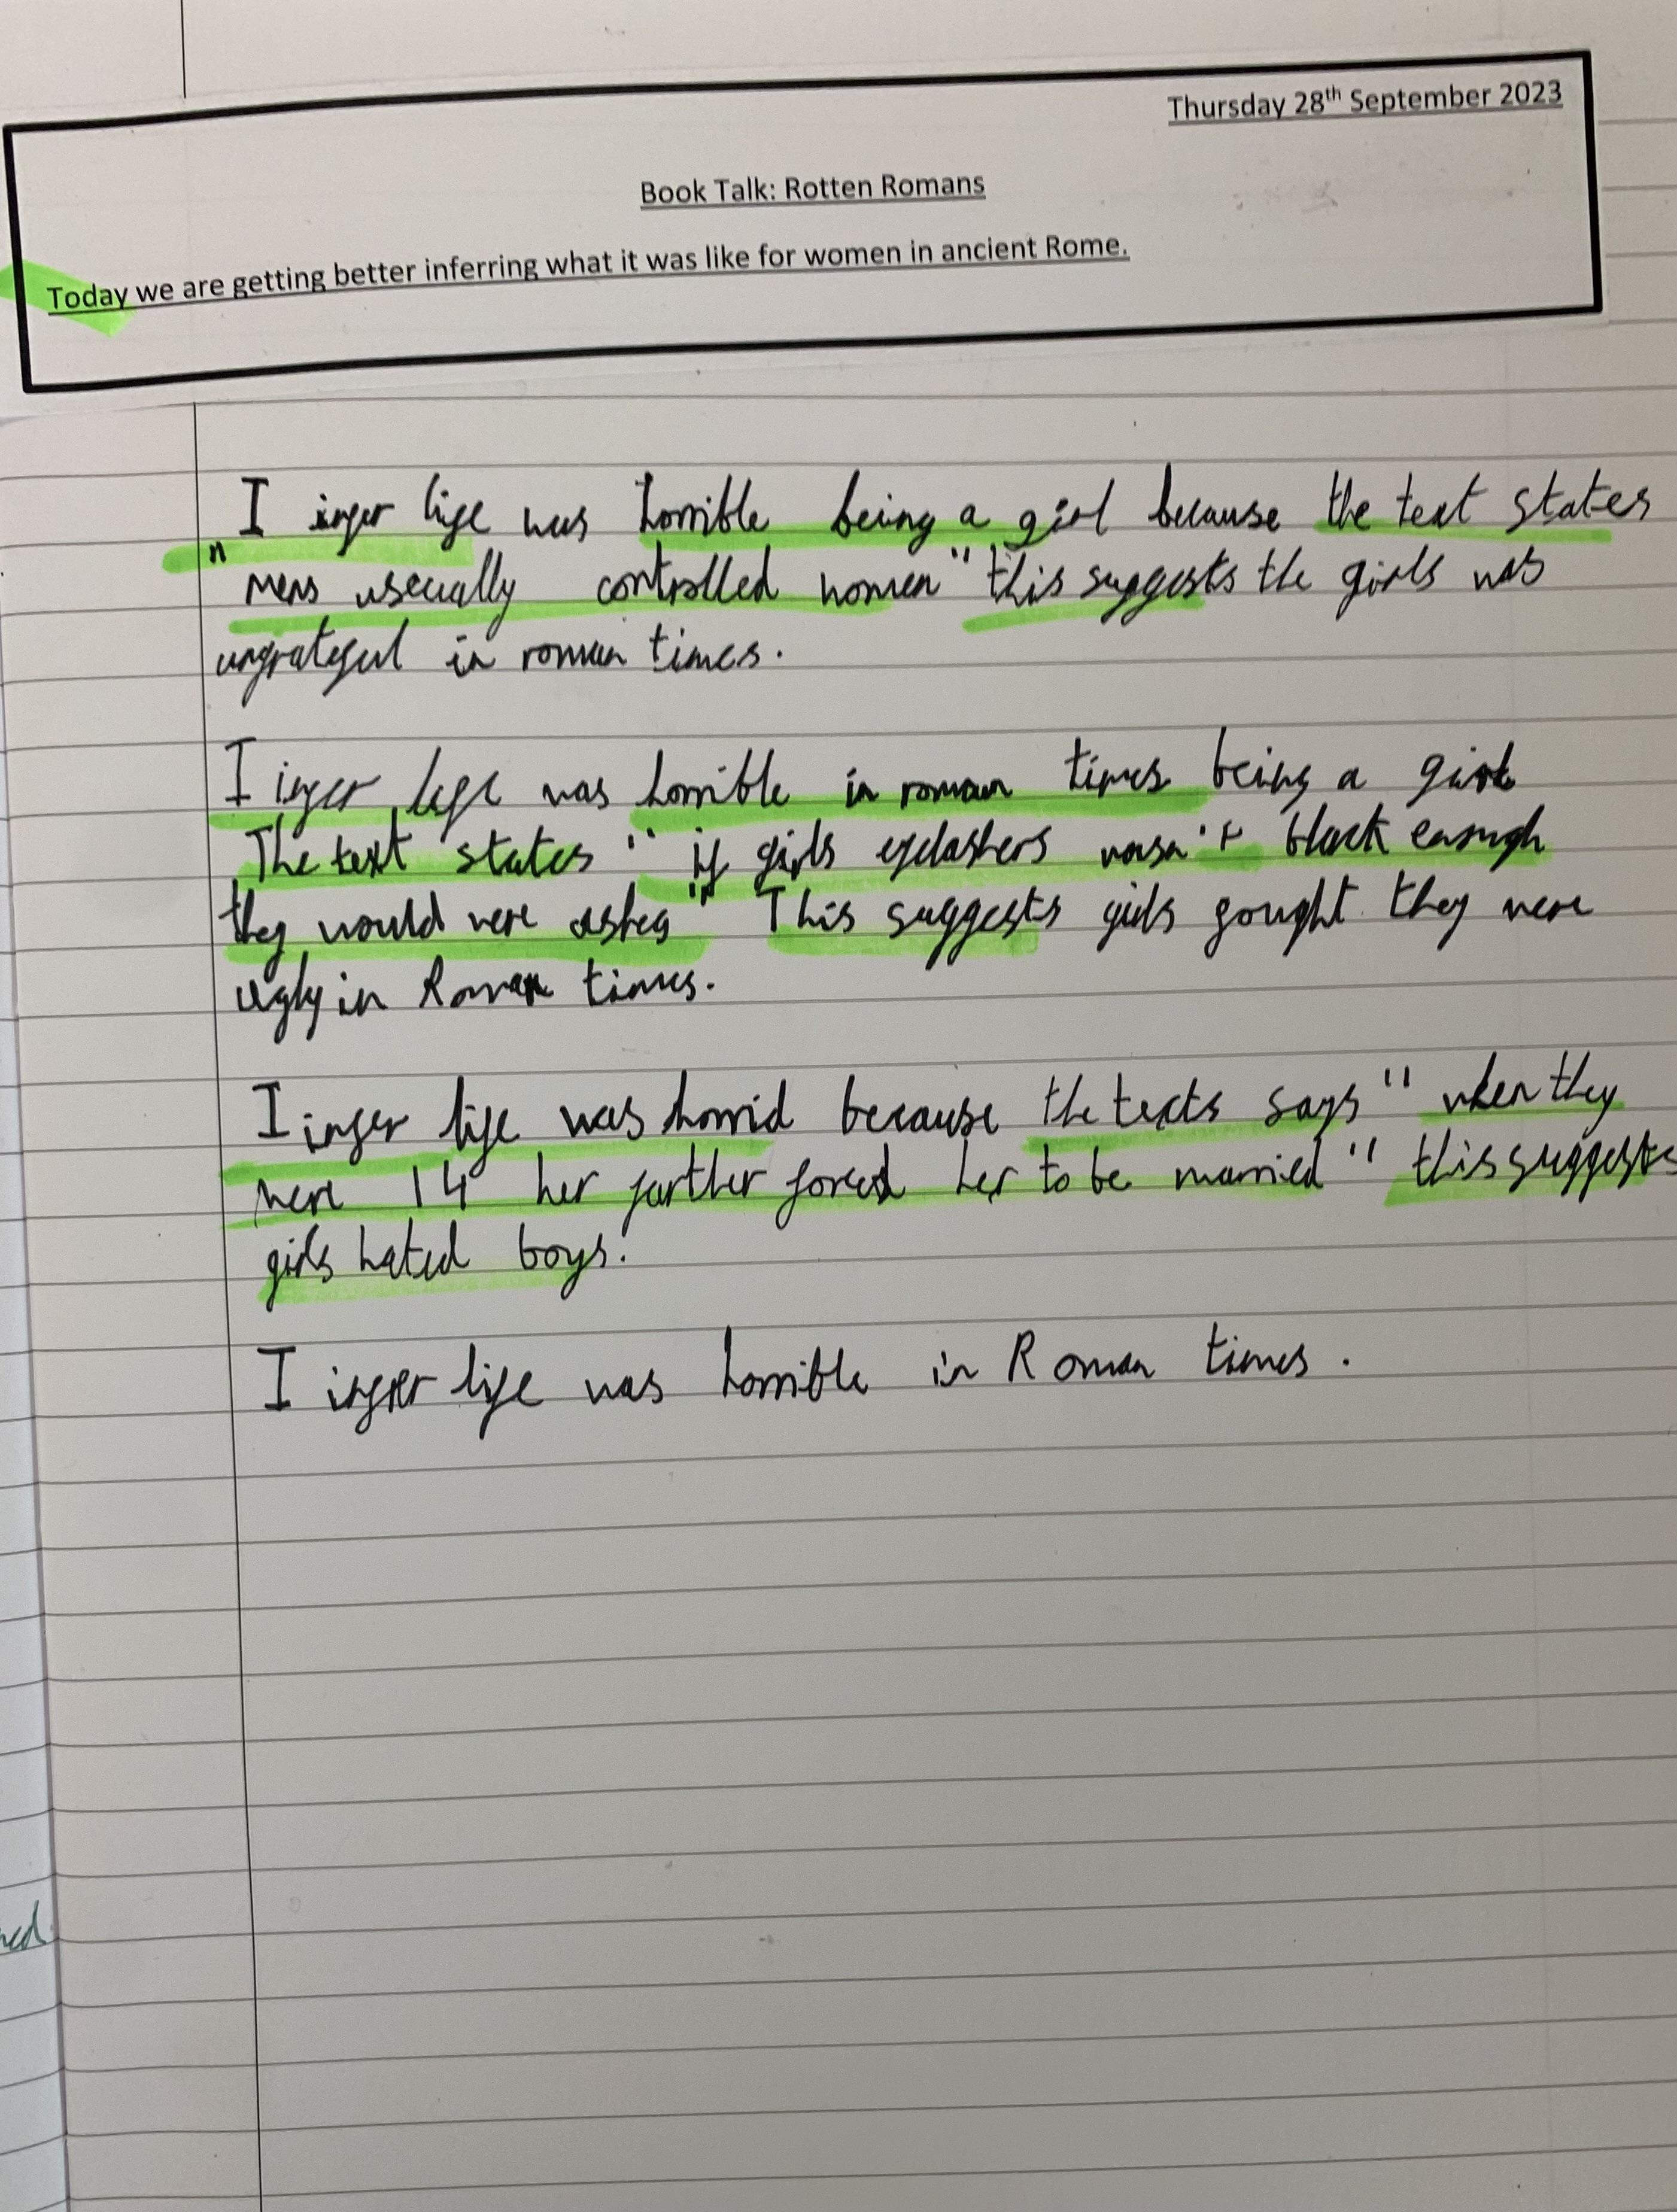 Thursday 28th September 2023
Book Talk: Rotten Romans
Today we are getting better inferring what it was like for women in ancient Rome.
I infer life was horrible being a girl because the text states
"mens usecually controlled women" this suggests the girls was
ungrateful in roman times.
I infer life was horrible in roman times being a girl
The text states "if girls eyelashers wasn't black enough
they would were ashes" This suggests girls fought they were
ugly in Roman times.
I infer life was horrid because the texts says "when they
were 14 her farther forced her to be married" this suggests
girls hated boys.
I infer life was horrible in Roman times.